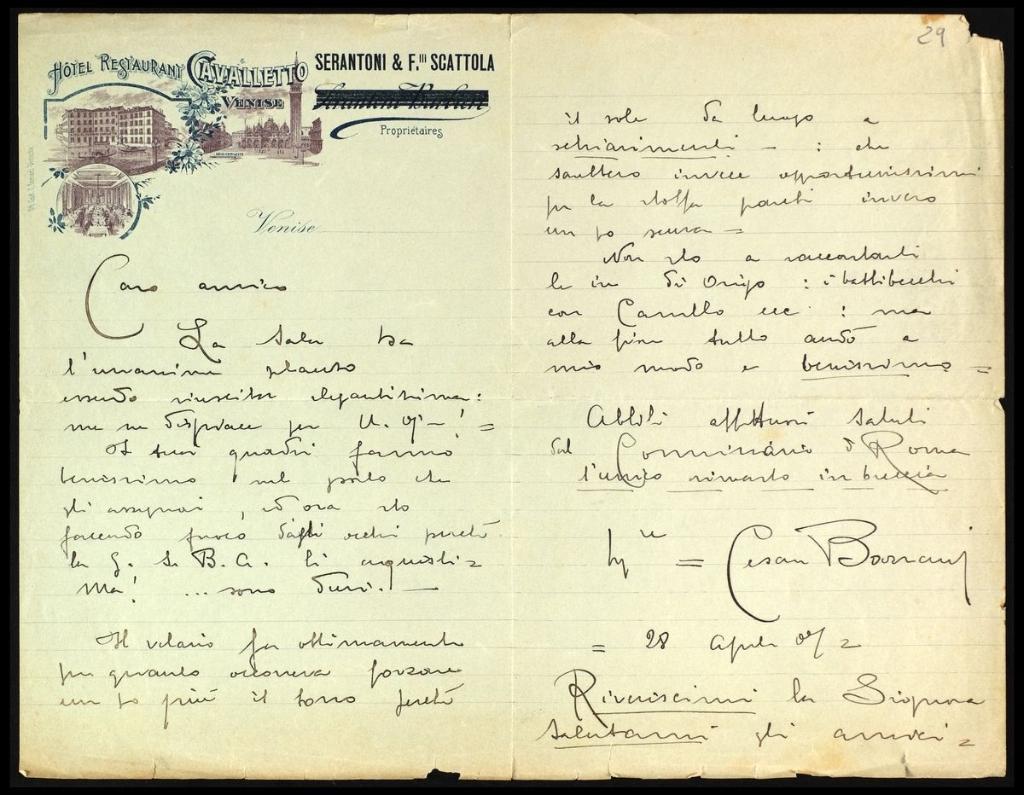 HÔTEL RESTAURANT CAVALLETTO
VENISE
SERANTONI & F.lli SCATTOLA
Propriétaires
Venise
Caro amico
La Sala ha
l'unanime plauso
essendo riuscita elegantissima:
me ne dispiace per U. Oj– ! =
I tuoi quadri fanno
benissimo nel posto che
gli assegnai, ed ora sto
facendo fuoco dagli occhi perché
la G. di B. A. li acquisti =
Ma! ... sono duri. —
Il velario fa ottimamente
per quanto occorreva forzare
un po più il tono perché
29
il sole dà luogo a
schiarimenti – : che
saultero invece opportunissimi
per la stoffa pareti invero
un po scura =
Non sto a raccontarti
le ire di Origo : i battibecchi
con Camillo ecc : ma
alla fine tutto andò a
mio modo e benissimo =
Abbiti affettuosi saluti
dal Commissario di Roma
l'unico rimasto in breccia
=
Cesare Bazzani
= 28 Aprile 09 =
Riveriscimi la Signora
Salutami gli amici =